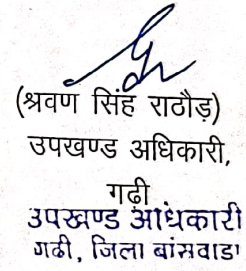 (श्रवण सिंह राठौड़)
उपखण्ड अधिकारी,
गढी
उपखण्ड अधिकारी
गढी, जिला बांसवाडा